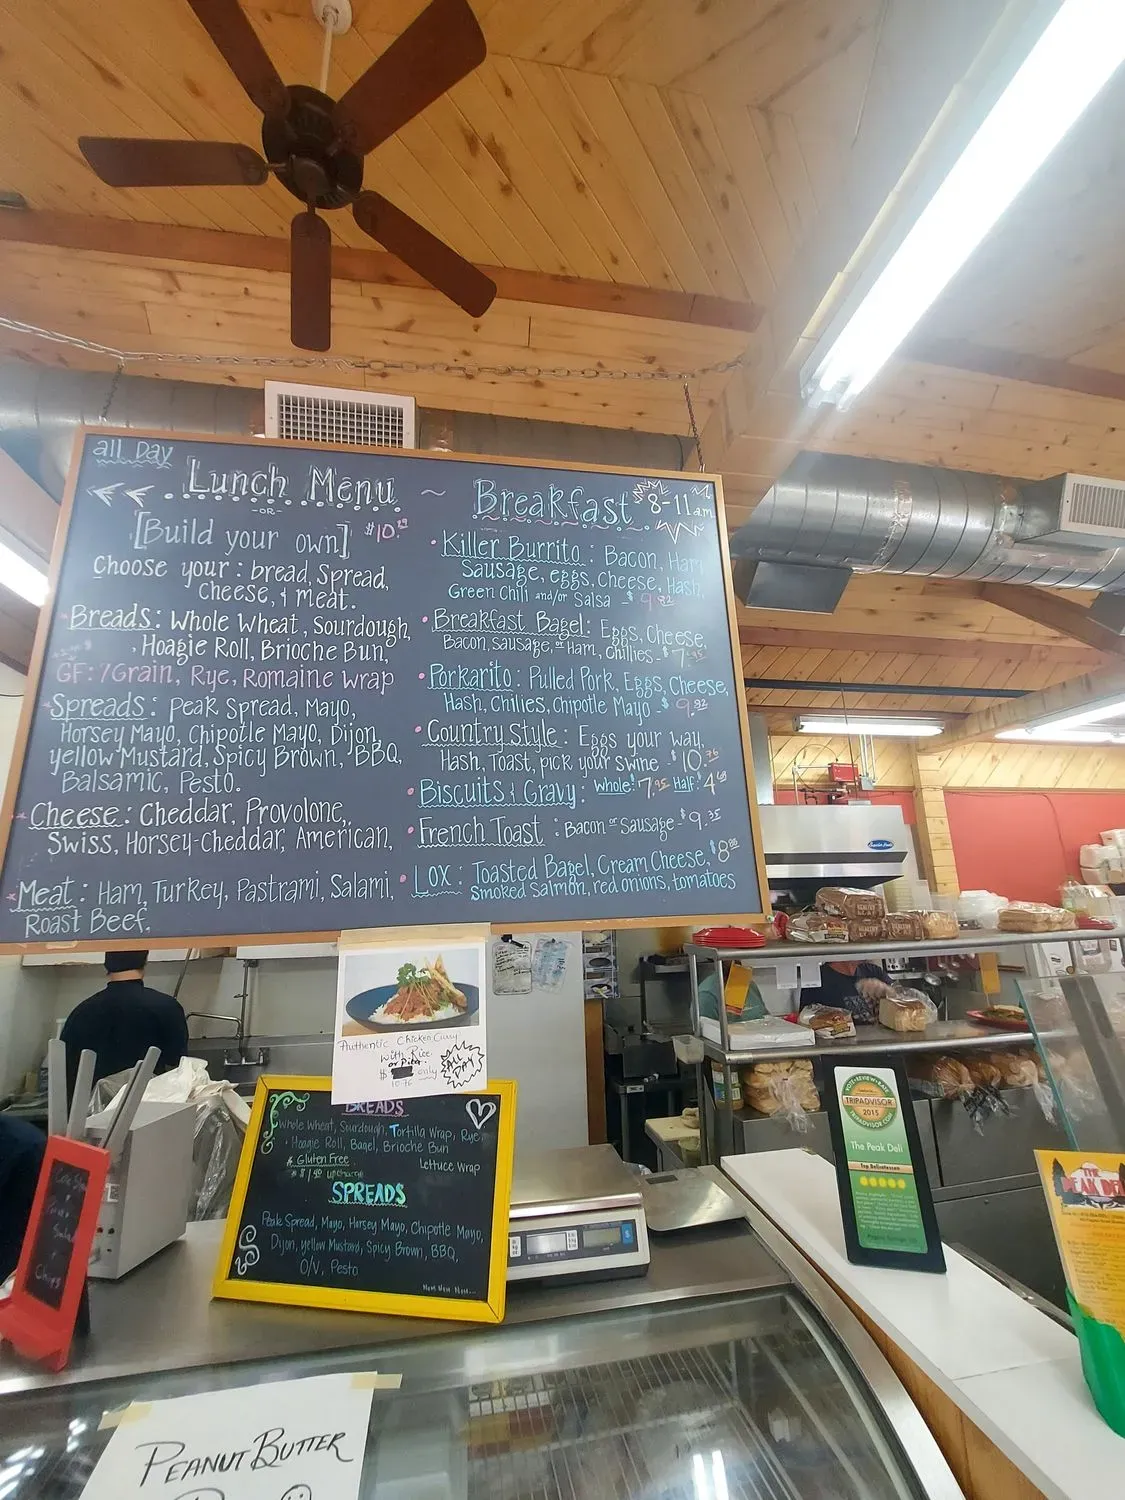 all Day
Lunch Menu
-OR-
[Build your own]
Choose your: bread, Spread,
Cheese, & meat.
Breads: Whole Wheat, Sourdough,
Hoagie Roll, Brioche Bun,
GF: 7Grain, Rye, Romaine Wrap
Spreads: Peak Spread, Mayo,
Horsey Mayo, Chipotle Mayo, Dijon,
yellow Mustard, Spicy Brown, BBQ,
Balsamic, Pesto.
Cheese: Cheddar, Provolone,
Swiss, Horsey-Cheddar, American,
Meat: Ham, Turkey, Pastrami, Salami,
Roast Beef.
~ Breakfast 8-11 a.m
Killer Burrito: Bacon, Ham
Sausage, eggs, Cheese, Hash,
Green Chili and/or Salsa - $9.82
Breakfast Bagel: Eggs, Cheese,
Bacon, Sausage, or Ham, Chillies - $7.95
Porkarito: Pulled Pork, Eggs, Cheese,
Hash, Chilies, Chipotle Mayo - $9.82
Country Style: Eggs your way,
Hash, Toast, pick your Swine - $10.76
Biscuits & Gravy: Whole: 7.95 Half: $4.68
French Toast: Bacon or Sausage - $9.35
Lox: Toasted Bagel, Cream Cheese, $8.88
Smoked Salmon, red onions, tomatoes
Authentic Chicken Curry
with Rice
or Pita
$ only
10.76
ALL DAY!
BREADS
Whole Wheat, Sourdough, Tortilla Wrap, Rye,
Hoagie Roll, Bagel, Brioche Bun
Gluten Free
Lettuce Wrap
SPREADS
Peak Spread, Mayo, Horsey Mayo, Chipotle Mayo,
Dijon, yellow Mustard, Spicy Brown, BBQ,
O/V, Pesto
Nom Nom Nom...
Chips
TRIPADVISOR
2015
The Peak Deli
Top Delicatessen
THE
PEAK DELI
PEANUT BUTTER